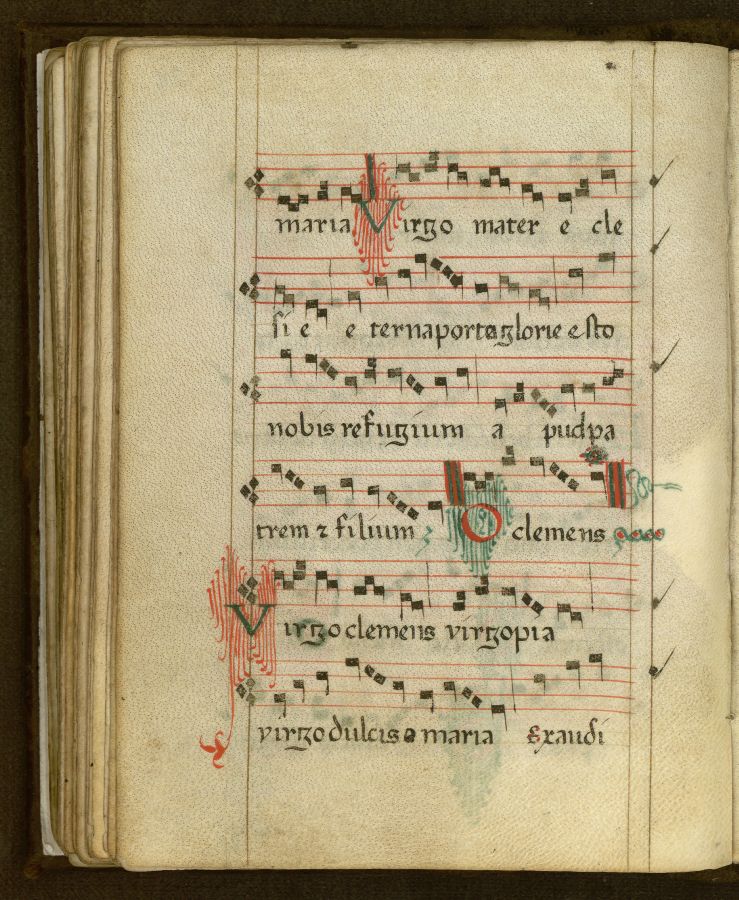 maria Virgo mater e cle
si e e terna porta glorie esto
nobis refugium a pud pa
trem ⁊ filium O clemens
Virgo clemens virgo pia
virgo dulcis o maria Exaudi